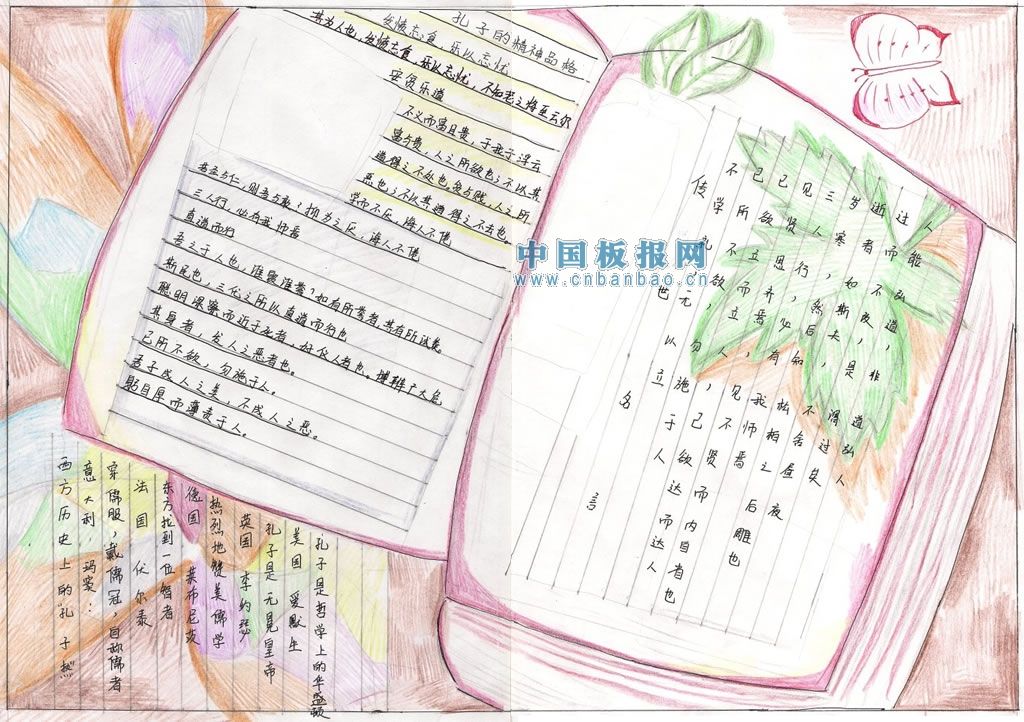 孔子的精神品格
发愤忘食，乐以忘忧
其为人也，发愤忘食，乐以忘忧，不知老之将至云尔
安贫乐道
不义而富且贵，于我于浮云
富与贵，人之所欲也；不以其
道得之不处也。贫与贱，人之所
恶也；不以其道得之不去也。
学而不厌，诲人不倦
若圣与仁，则吾与敢？抑为之厌，诲人不倦
三人行，必有我师焉
直道而行
吾之于人也，谁毁谁誉？如有所誉者，其有所试矣。
斯民也，三代之所以直道而行也
聪明深察而近于死者，好仪人者也。博辩广大危
其身者，发人之恶者也。
己所不欲，勿施于人。
君子成人之美，不成人之恶。
躬自厚而薄责于人。
传世名言
不学礼，无以立
己所不欲，勿施于人
己欲立而立人，己欲达而达人
见贤思齐焉，见不贤而内自省也
三人行，必有我师焉
岁寒，然后知松柏之后雕也
逝者如斯夫，不舍昼夜
人能弘道，非道弘人
中国板报网
www.cnbanbao.cn
西方历史上的孔子热
意大利，玛窦：
穿儒服，戴儒冠，自称儒者
法国 伏尔泰
东方找到一位智者
德国 莱布尼茨
热烈地赞美儒学
英国 李约瑟
孔子是无冕皇帝
美国 爱默生
孔子是哲学上的华盛顿